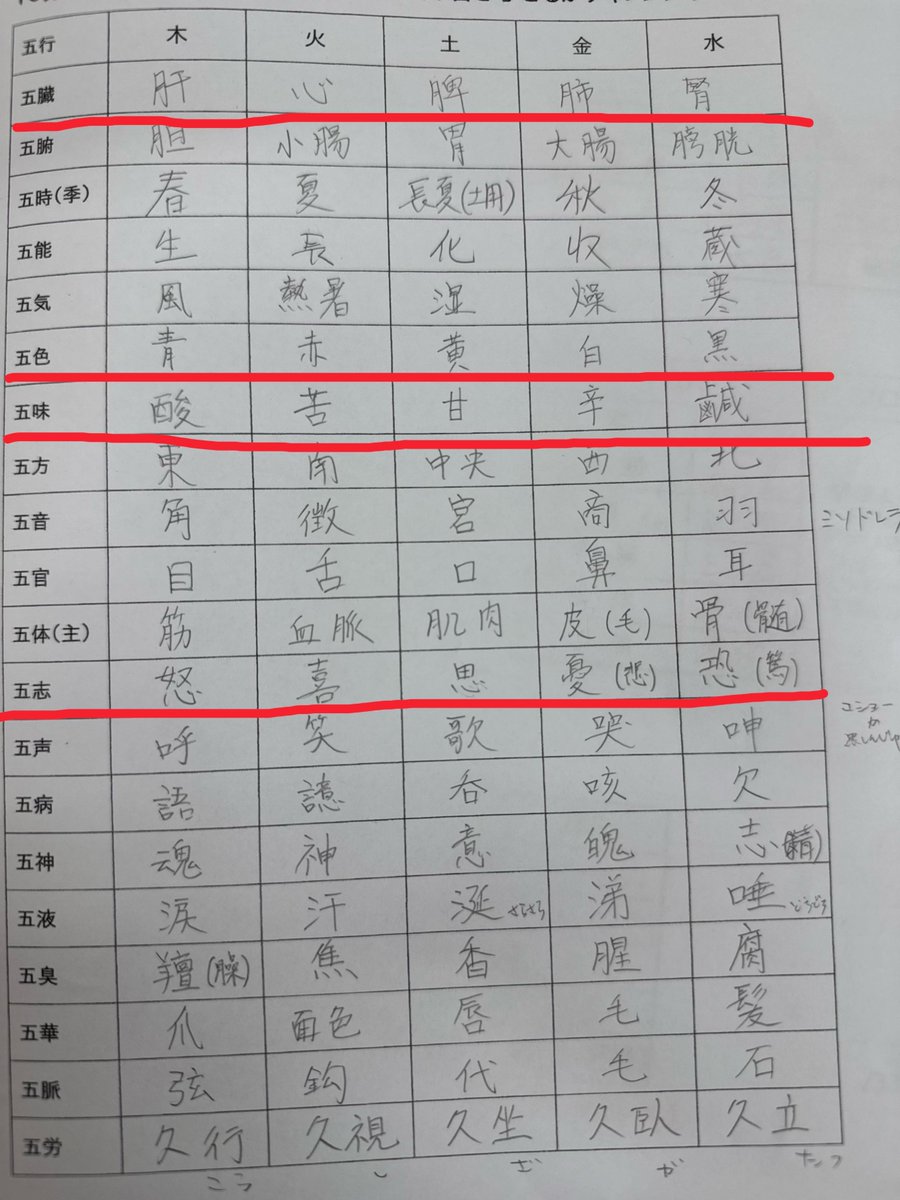 五行 木 火 土 金 水
五臓 肝 心 脾 肺 腎
五腑 胆 小腸 胃 大腸 膀胱
五時(季) 春 夏 長夏(土用) 秋 冬
五能 生 長 化 収 蔵
五気 風 熱暑 湿 燥 寒
五色 青 赤 黄 白 黒
五味 酸 苦 甘 辛 鹹
五方 東 南 中央 西 北
五音 角 徴 宮 商 羽 ミソドレラ
五官 目 舌 口 鼻 耳
五体(主) 筋 血脈 肌肉 皮(毛) 骨(髄)
五志 怒 喜 思 憂(悲) 恐(驚)
五声 呼 笑 歌 哭 呻
五病 語 噫 呑 咳 欠
五神 魂 神 意 魄 志(精)
五液 涙 汗 涎 さらさら 涕 唾
五臭 羶(臊) 焦 香 腥 腐
五華 爪 面色 唇 毛 髪
五脈 弦 鈎 代 毛 石
五労 久行 久視 久坐 久臥 久立
こう し ざ が